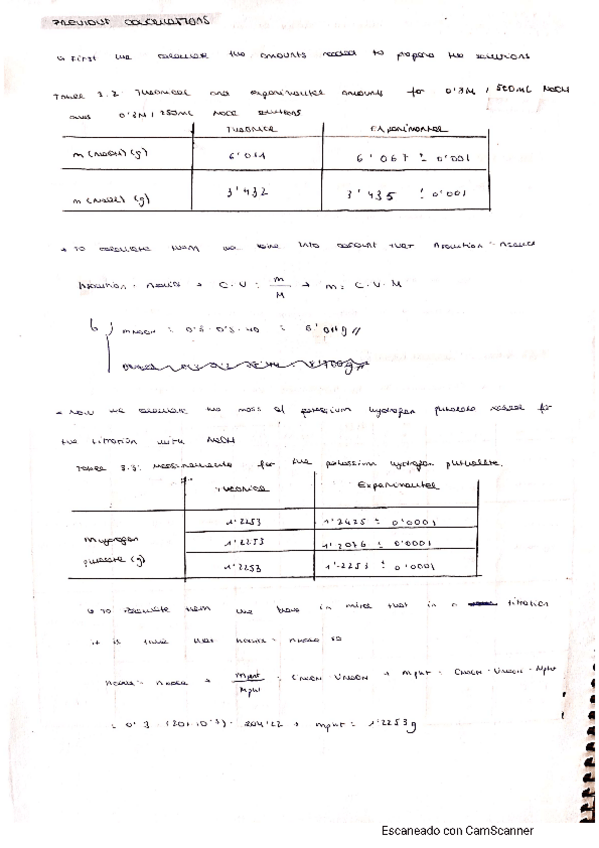 PREVIOUS CALCULATIONS
↳ First we calculate the amounts needed to prepare the solutions
Table 3.2 Theorical and experimental amounts for 0'3M, 500mL NaOH
and 0'3M, 250mL solutions
Theorical Experimental
m(NaOH) (g) 6'011 6'067 ± 0'001
(g) 3'432 3'435 ± 0'001
→ To calculate them we take into account that nsolution =
nsolution = → C·V = m/M → m = C·V·M
mNaOH = 0'3 · 0'5 · 40 = 6'011g //
→ Now we calculate the mass of potassium hydrogen phtalate needed for
the titration with NaOH
Table 3.3: Measurements for the potassium hydrogen phthalate.
Theorical Experimental
m hydrogen
phtalate (g)
1'2253 1'2425 ± 0'0001
1'2253 1'2076 ± 0'0001
1'2253 1'2253 ± 0'0001
↳ To calculate them we have in mind that in a titration
it is true that
→ mpht/Mpht = CNaOH VNaOH → mpht = CNaOH · VNaOH · Mpht
= 0'3 · (20·10⁻³) · 204'22 → mpht = 1'2253g
Escaneado con CamScanner